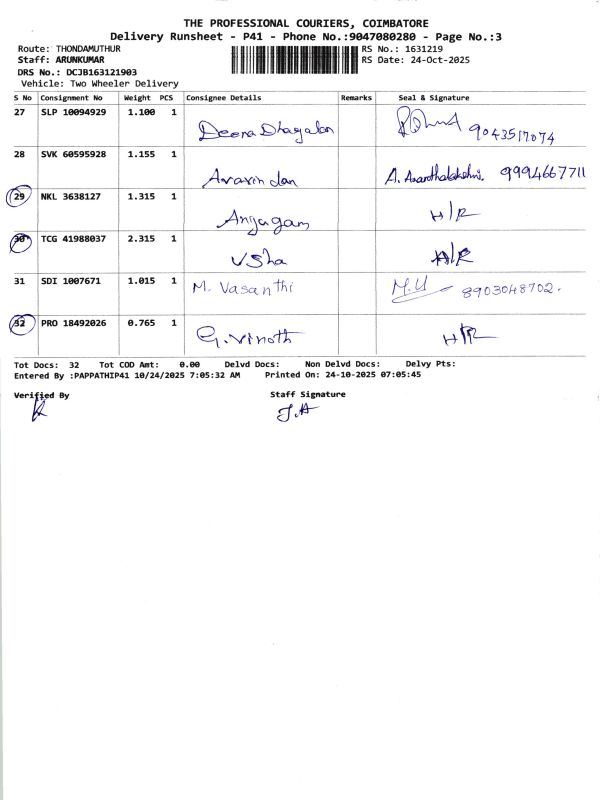 THE PROFESSIONAL COURIERS, COIMBATORE
Delivery Runsheet - P41 - Phone No.:9047080280 - Page No.:3
Route: THONDAMUTHUR RS No.: 1631219
Staff: ARUNKUMAR RS Date: 24-Oct-2025
DRS No.: DCJB163121903
Vehicle: Two Wheeler Delivery
S No Consignment No Weight PCS Consignee Details Remarks Seal & Signature
27 SLP 10094929 1.100 1 Deena Dhayalan 9043517074
28 SVK 60595928 1.155 1 Aravindan A. Ananthalakshmi. 9994667711
29 NKL 3638127 1.315 1 Anjugam H/R
30 TCG 41988037 2.315 1 Usha H/R
31 SDI 1007671 1.015 1 M. Vasanthi M.U 8903048702.
32 PRO 18492026 0.765 1 G. Vinoth H/R
Tot Docs: 32 Tot COD Amt: 0.00 Delvd Docs: Non Delvd Docs: Delvy Pts:
Entered By :PAPPATHIP41 10/24/2025 7:05:32 AM Printed On: 24-10-2025 07:05:45
Verified By Staff Signature